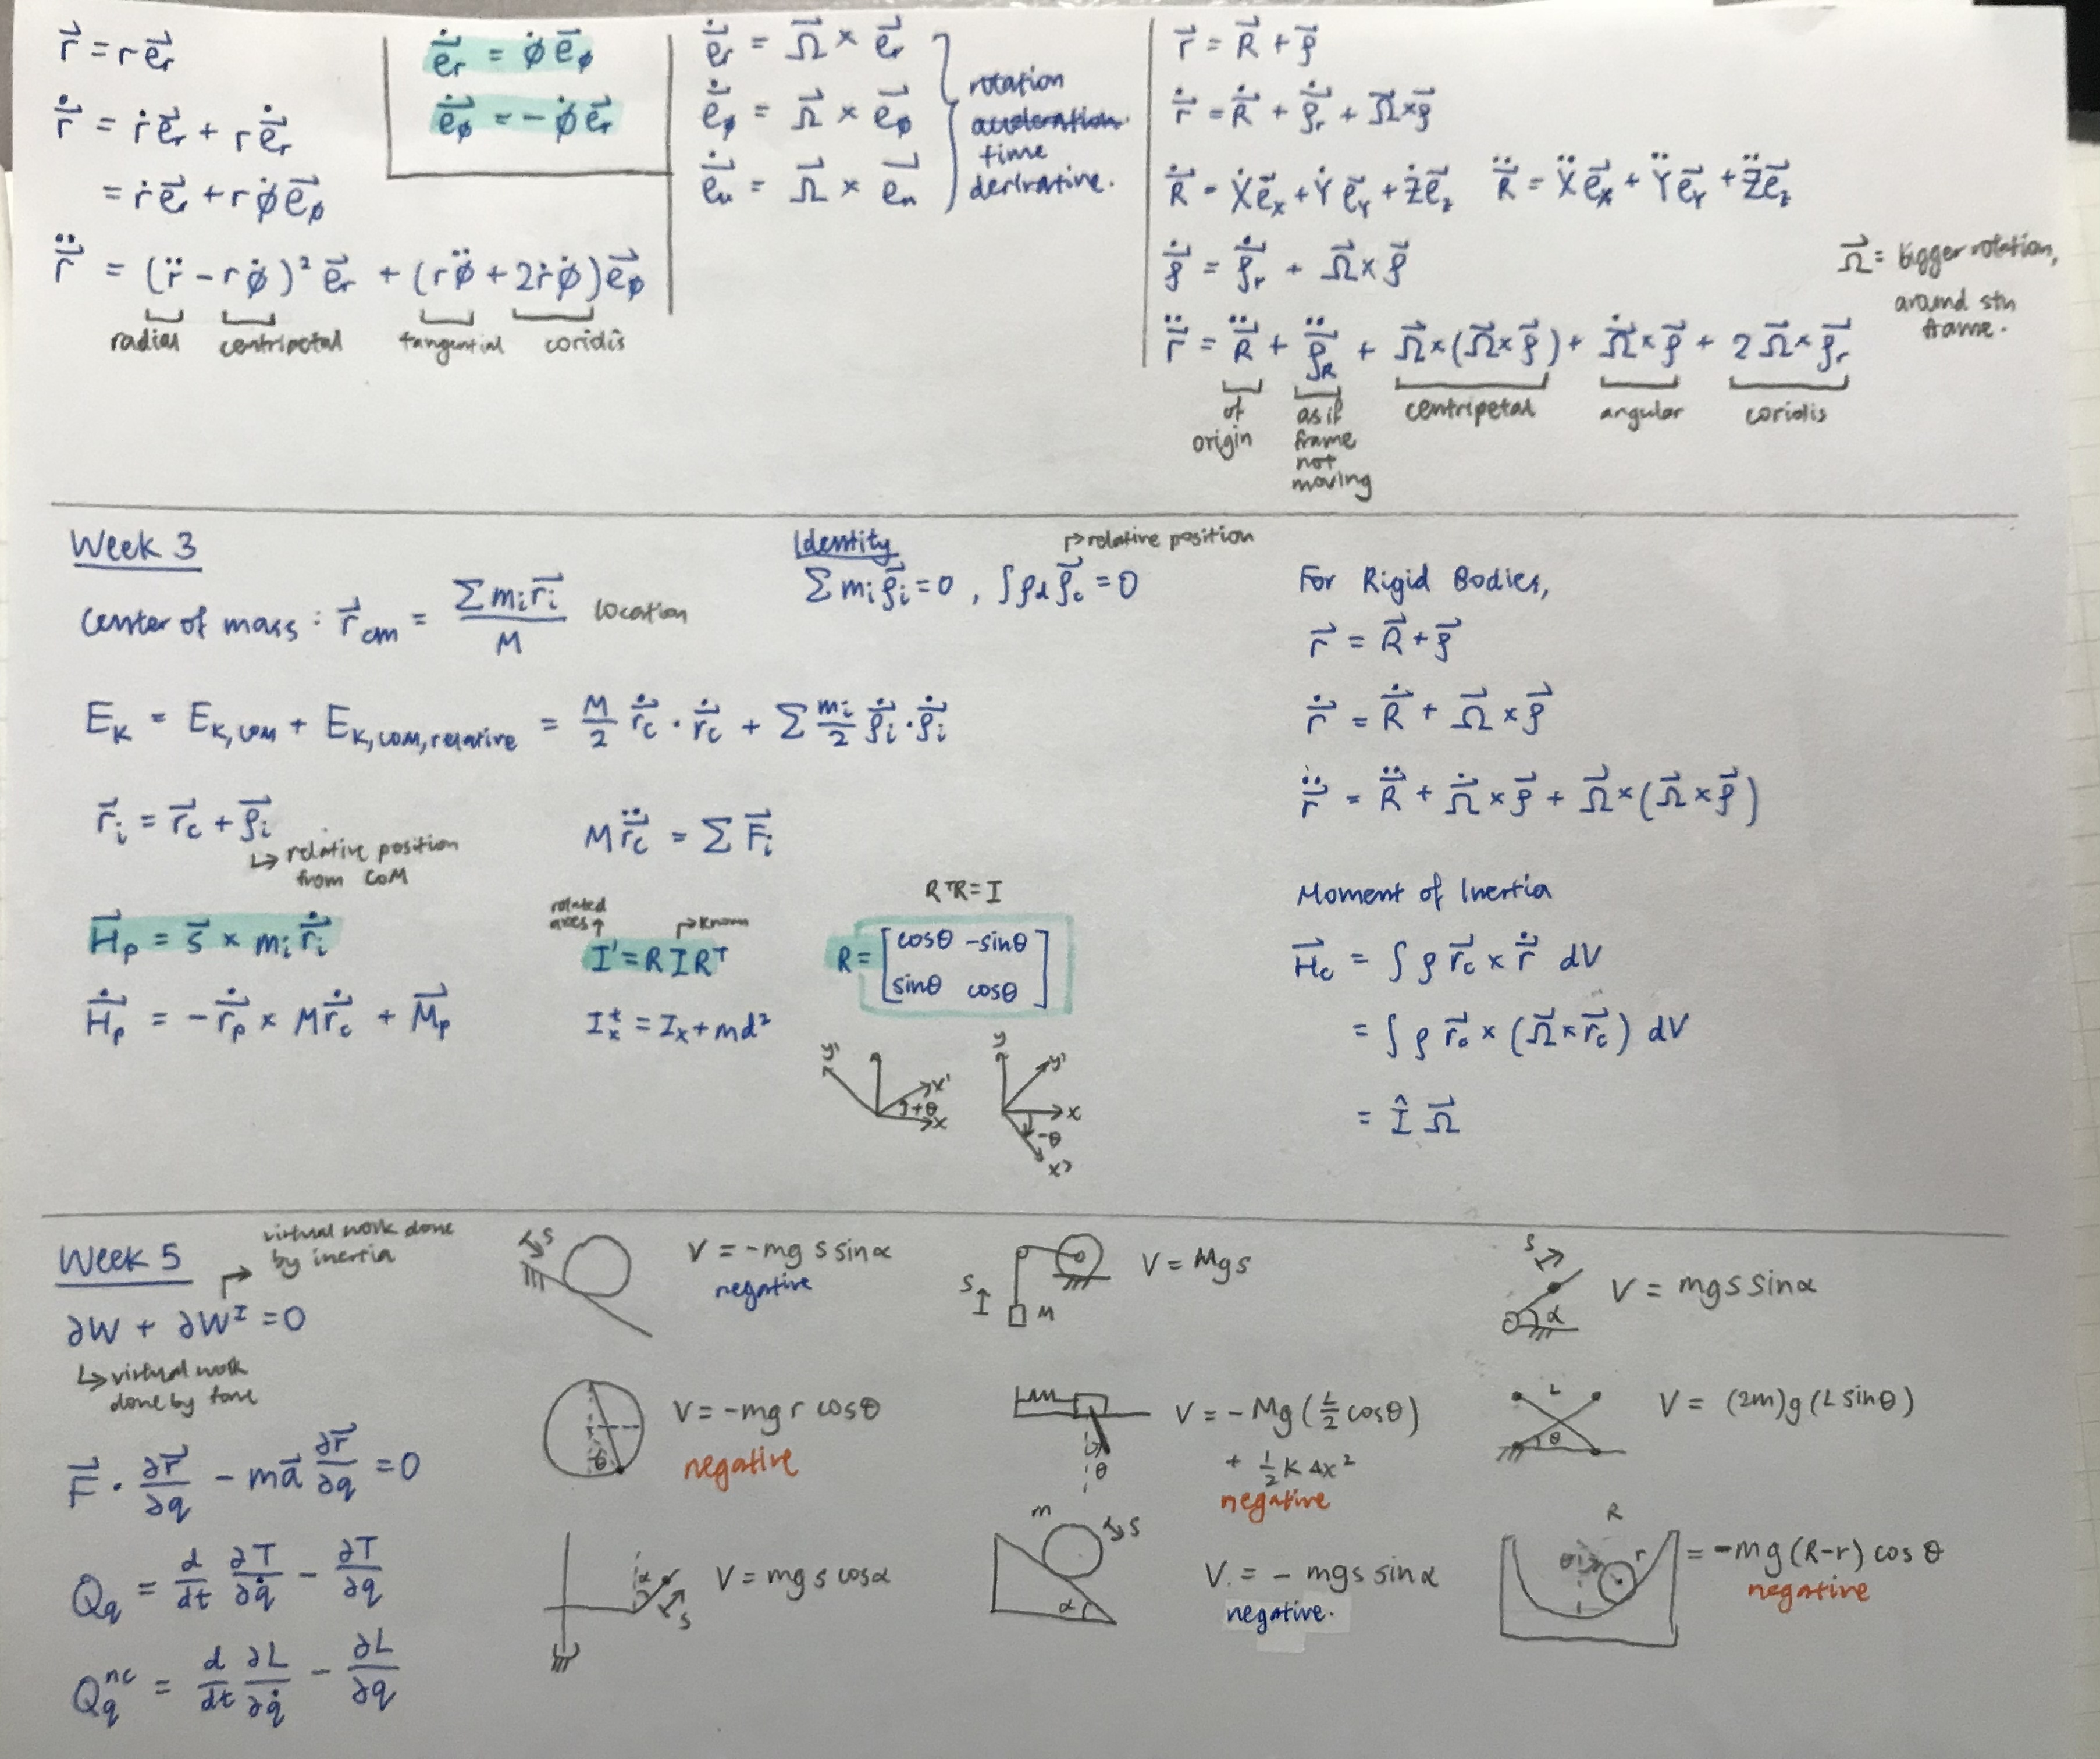 r⃗ = r e⃗r
ṙ⃗ = ṙ e⃗r + r ė⃗r
= ṙ e⃗r + r φ̇ e⃗φ
r̈⃗ = (r̈ - r φ̇)² e⃗r + (r φ̈ + 2ṙ φ̇) e⃗φ
radial centripetal tangential coriolis
ė⃗r = φ̇ e⃗φ
ė⃗φ = - φ̇ e⃗r
ė⃗r = Ω⃗ × e⃗r
ė⃗φ = Ω⃗ × e⃗φ
ė⃗n = Ω⃗ × e⃗n
rotation
acceleration
time
derivative.
r⃗ = R⃗ + ρ⃗
ṙ⃗ = Ṙ⃗ + ρ̇⃗r + Ω⃗ × ρ⃗
Ṙ⃗ = Ẋ e⃗X + Ẏ e⃗Y + Ż e⃗z R̈⃗ = Ẍ e⃗X + Ÿ e⃗Y + Z̈ e⃗z
ρ̇⃗ = ρ̇⃗r + Ω⃗ × ρ⃗
Ω⃗ = bigger rotation,
around stn
frame.
r̈⃗ = R̈⃗ + ρ̈⃗R + Ω⃗ × (Ω⃗ × ρ⃗) + Ω̇⃗ × ρ⃗ + 2 Ω⃗ × ρ̇⃗r
of
origin
as if
frame
not
moving
centripetal
angular
coriolis
Week 3
Center of mass : r⃗cm = Σ mi r⃗i / M location
Identity
↱ relative position
Σ mi ρ⃗i = 0 , ∫ ρ d ρ⃗c = 0
EK = EK,COM + EK,COM,relative = M/2 ṙ⃗c · ṙ⃗c + Σ mi/2 ρ̇⃗i · ρ̇⃗i
r⃗i = r⃗c + ρ⃗i
↳ relative position
from CoM
M r̈⃗c = Σ F⃗i
H⃗p = s⃗ × mi ṙ⃗i
Ḣ⃗p = - ṙ⃗p × M ṙ⃗c + M⃗p
rotated
axes ↑
↱ known
I' = R I Rᵀ
Iₓᵗ = Iₓ + md²
RᵀR = I
R = [cosθ -sinθ
sinθ cosθ]
y' x' +θ x
y y' x -θ x'
For Rigid Bodies,
r⃗ = R⃗ + ρ⃗
ṙ⃗ = Ṙ⃗ + Ω⃗ × ρ⃗
r̈⃗ = R̈⃗ + Ω̇⃗ × ρ⃗ + Ω⃗ × (Ω⃗ × ρ⃗)
Moment of Inertia
H⃗c = ∫ ρ r⃗c × ṙ⃗ dV
= ∫ ρ r⃗c × (Ω⃗ × r⃗c) dV
= Î Ω⃗
Week 5
virtual work done
by inertia
∂W + ∂Wᴵ = 0
↳ virtual work
done by
F⃗ · ∂r⃗/∂q - m a⃗ ∂r⃗/∂q = 0
Qq = d/dt ∂T/∂q̇ - ∂T/∂q
Qqⁿᶜ = d/dt ∂L/∂q̇ - ∂L/∂q
s
V = -mg s sinα
negative
s M
V = Mgs
s α
V = mgs sinα
θ
V = -mg r cosθ
negative
θ
V = - Mg (L/2 cosθ)
+ 1/2 K Δx²
negative
L θ
V = (2m)g (L sinθ)
α s
V = mg s cosα
m s α
V. = - mgs sinα
negative.
R θ r
= -mg (R-r) cos θ
negative